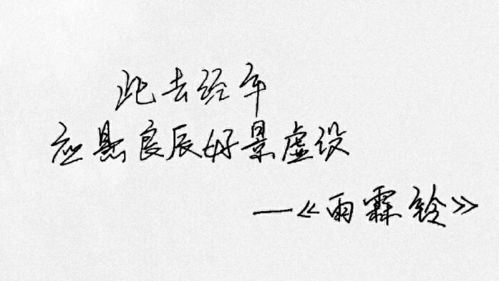 此去经年
应是良辰好景虚设
—《雨霖铃》